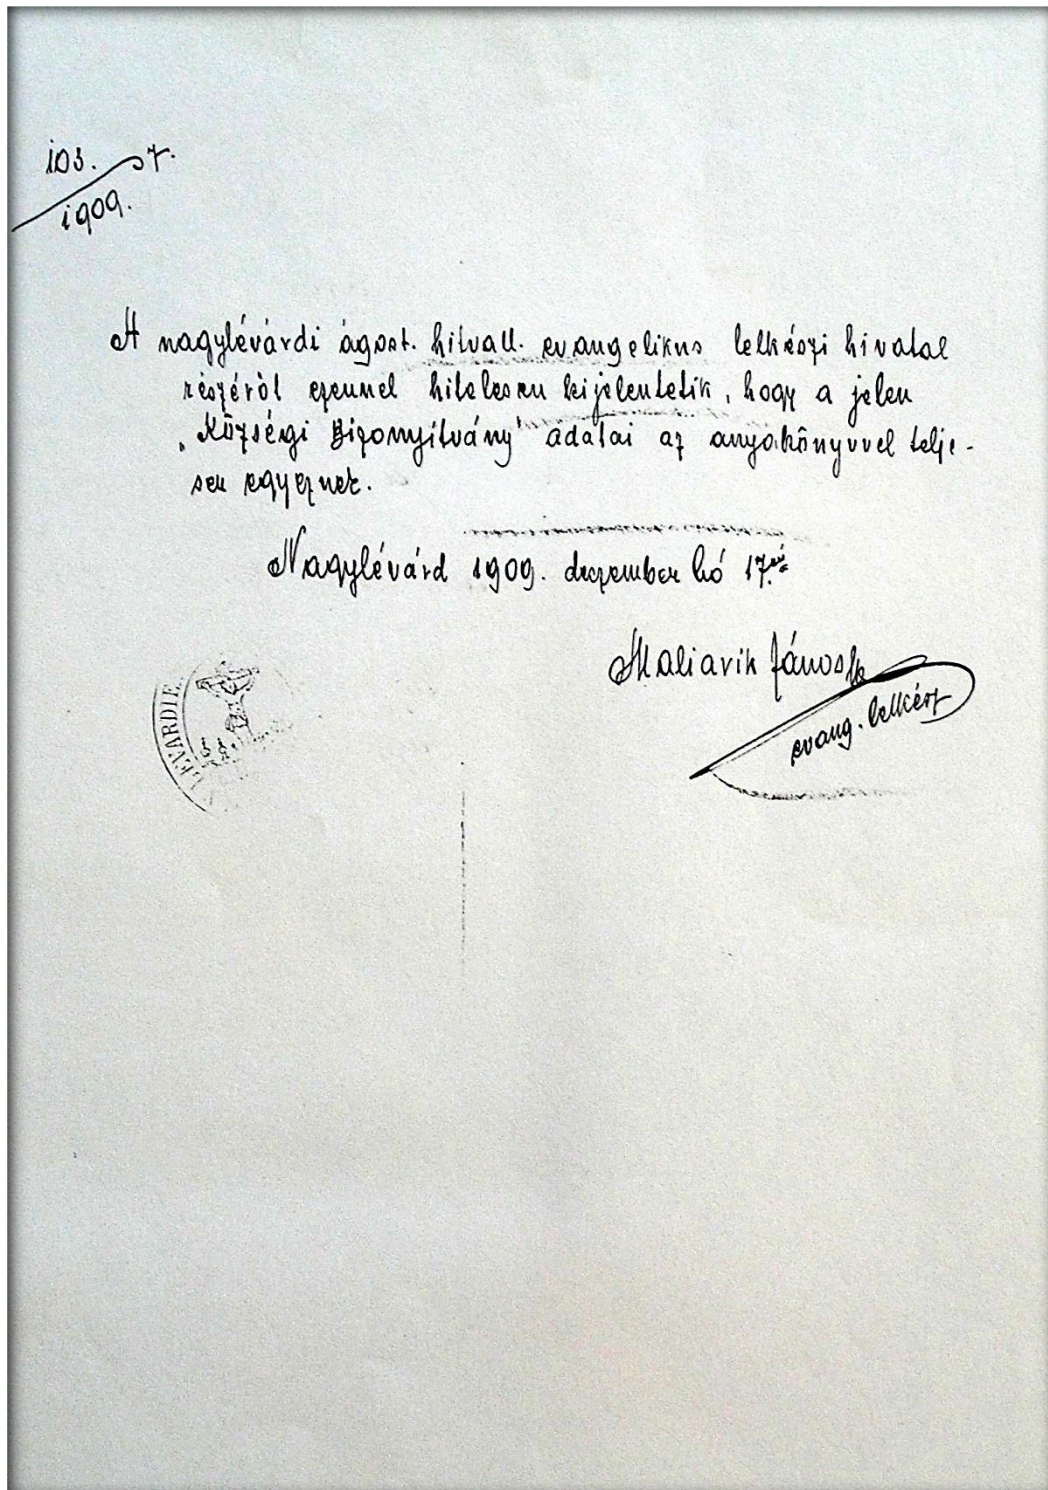 103. sz.
1909.
A nagylévárdi ágost. hitvall. evangelikus lelkészi hivatal
részéről ezennel hitelesen kijelentetik, hogy a jelen
„Községi Bizonyítvány" adatai az anyakönyvvel telje-
sen egyeznek.
Nagylévárd 1909. dezember hó 17.én
Maliarik János
evang. lelkész
LEVARDIE